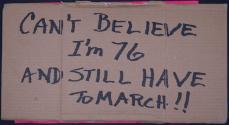 CAN'T BELIEVE
I'm 76
AND STILL HAVE
TO MARCH!!